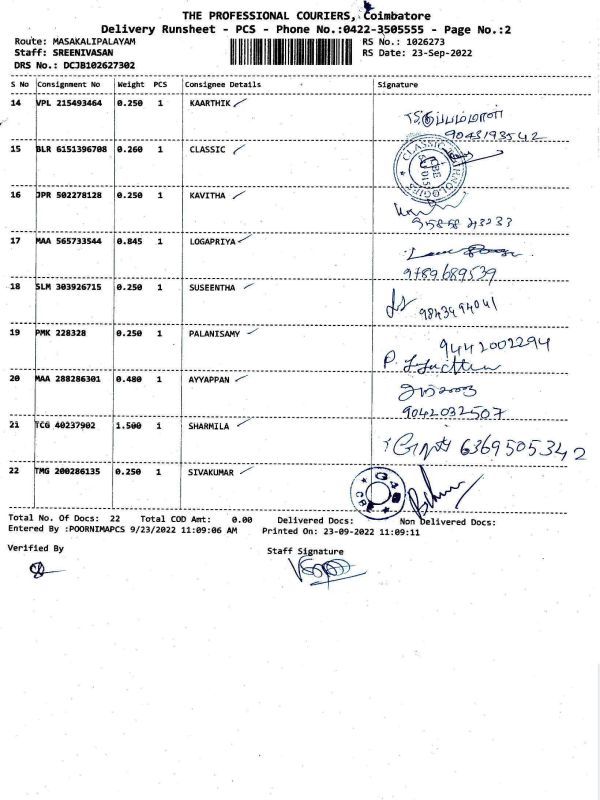 THE PROFESSIONAL COURIERS, Coimbatore
Delivery Runsheet - PCS - Phone No.:0422-3505555 - Page No.:2
Route: MASAKALIPALAYAM RS No.: 1026273
Staff: SREENIVASAN RS Date: 23-Sep-2022
DRS No.: DCJB102627302
S No Consignment No Weight PCS Consignee Details Signature
14 VPL 215493464 0.250 1 KAARTHIK
9043193542
15 BLR 6151396708 0.260 1 CLASSIC
CLASSIC
16 JPR 502278128 0.250 1 KAVITHA
95858 43233
17 MAA 565733544 0.845 1 LOGAPRIYA
9789689539
18 SLM 303926715 0.250 1 SUSEENTHA
9843494041
19 PMK 228328 0.250 1 PALANISAMY
9442002294
20 MAA 288286301 0.480 1 AYYAPPAN
9042032507
21 TCG 40237902 1.500 1 SHARMILA
6369505342
22 TMG 200286135 0.250 1 SIVAKUMAR
Total No. Of Docs: 22 Total COD Amt: 0.00 Delivered Docs: Non Delivered Docs:
Entered By :POORNIMAPCS 9/23/2022 11:09:06 AM Printed On: 23-09-2022 11:09:11
Verified By Staff Signature